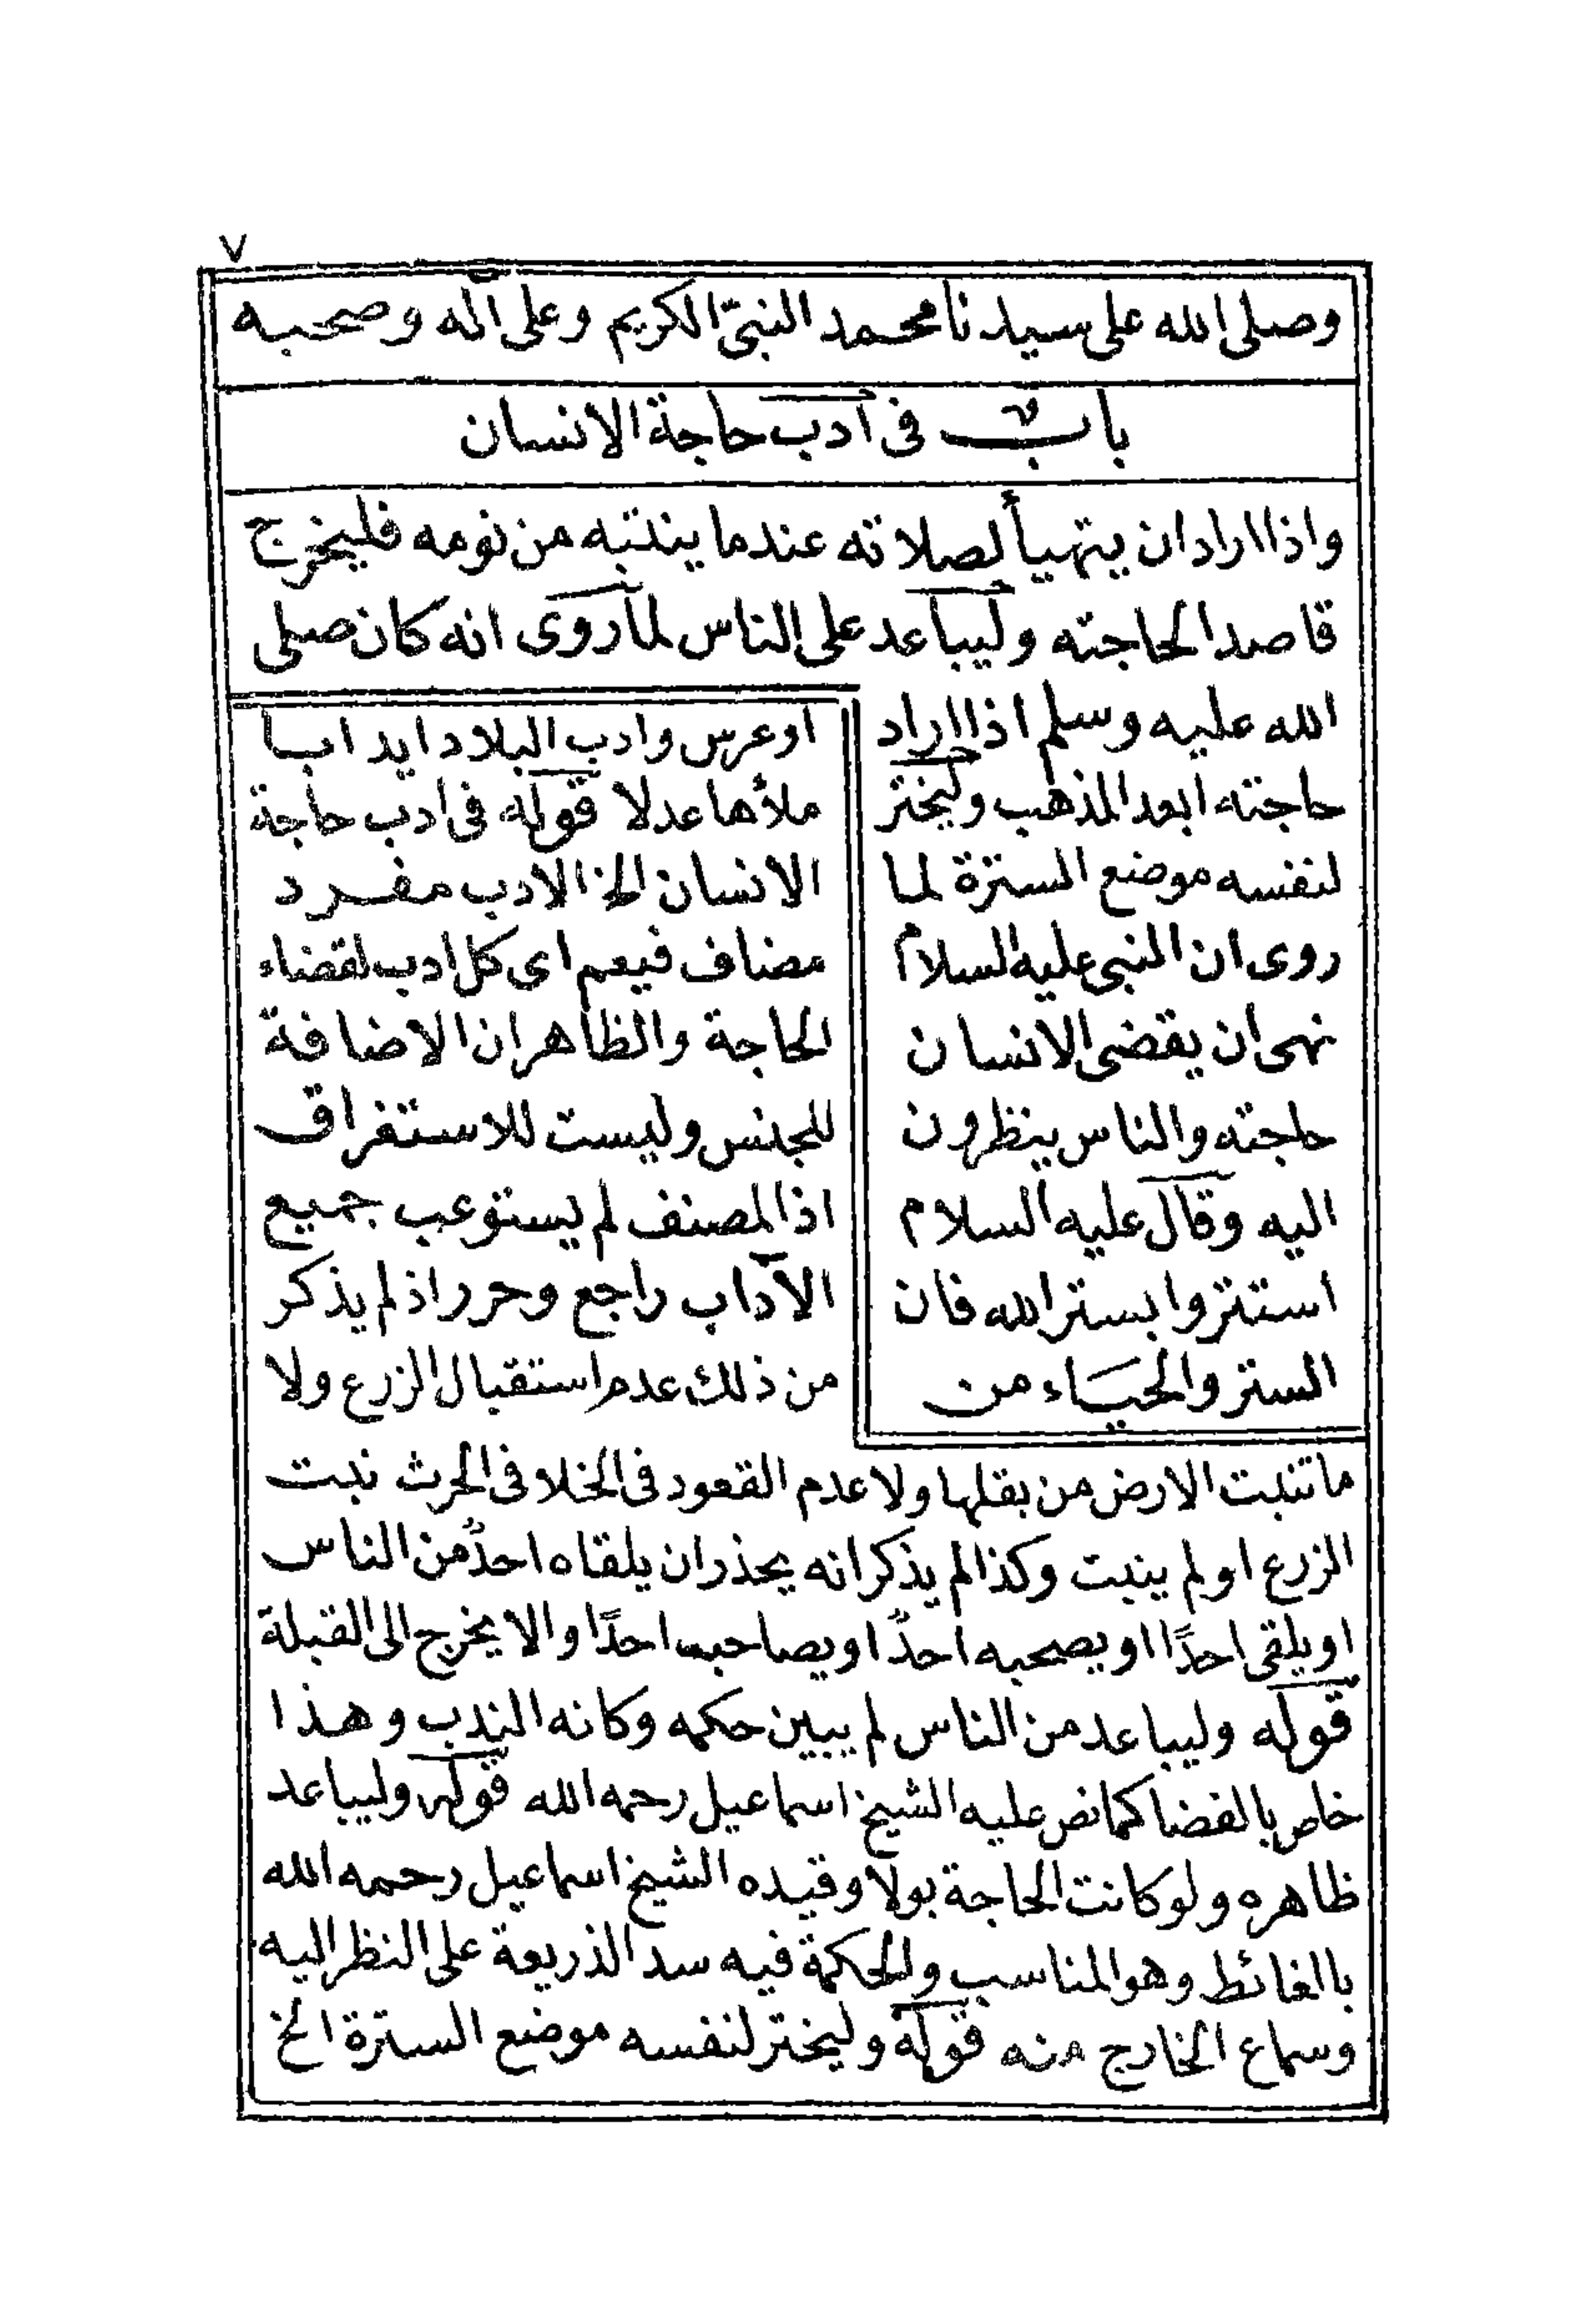 ٧
وصلى الله على سيدنا محمد النبىّ الكريم وعلى اله وصحبه
باب فى ادب حاجة الانسان
واذا اراد ان يتهيأ لصلاته عندما ينتبه من نومه فليخرج
قاصدا لحاجته وليباعد على الناس لما روى انه كان صلى
الله عليه وسلم اذا اراد
حاجته ابعد المذهب وليختر
لنفسه موضع السترة لما
روى ان النبى عليه السلام
نهى ان يقضى الانسان
حاجته والناس ينظرون
اليه وقال عليه السلام
استتروا بستر الله فان
الستر والحياء من
او عرس وادب البلاد ايد ابا
ملأها عدلا قوله فى ادب حاجة
الانسان الخ الادب مفرد
مضاف فيعم اى كل ادب لقضاء
الحاجة والظاهر ان الاضافة
للجنس وليست للاستغراق
اذ المصنف لم يستوعب جميع
الآداب راجع وحرر اذ لم يذكر
من ذلك عدم استقبال الزرع ولا
ما تنبت الارض من بقلها ولا عدم القعود فى الخلا فى الحرث نبت
الزرع او لم ينبت وكذا لم يذكر انه يحذر ان يلقاه احدٌ من الناس
او يلقى احدًا او يصحبه احدٌ او يصاحب احدًا والا يخرج الى القبلة
قوله وليباعد من الناس لم يبين حكمه وكانه الندب وهذا
خاص بالفضا كما نص عليه الشيخ اسماعيل رحمه الله قوله وليباعد
ظاهره ولو كانت الحاجة بولا وقيده الشيخ اسماعيل رحمه الله
بالغائط وهو المناسب والحكمة فيه سد الذريعة على النظر اليه
وسماع الخارج منه قوله وليختر لنفسه موضع السترة الخ